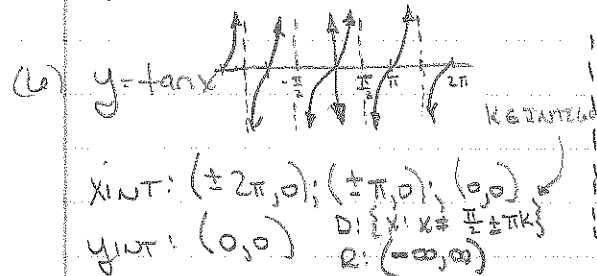 (6) y=tanx
-π/2 π/2 π 2π
K∈INTEGE
XINT: (±2π,0); (±π,0); (0,0)
yINT: (0,0) D: {x: x≠ π/2 ± πK}
R: (-∞,∞)